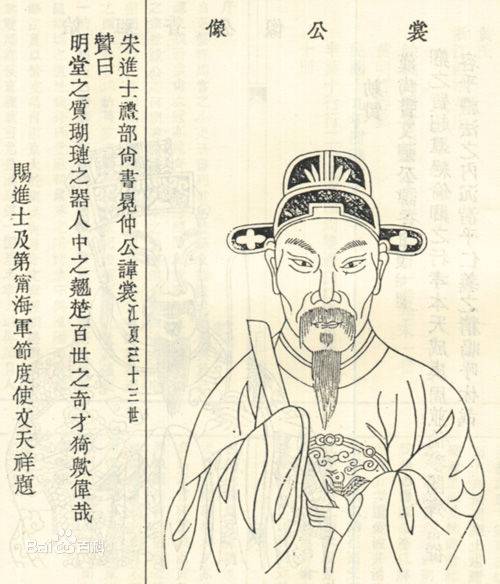 裳公像
宋進士禮部尚書冕仲公諱裳江夏三十三世
贊曰
明堂之質瑚璉之器人中之翹楚百世之奇才猗歟偉哉
賜進士及第甯海軍節度使文天祥題
Bai百科